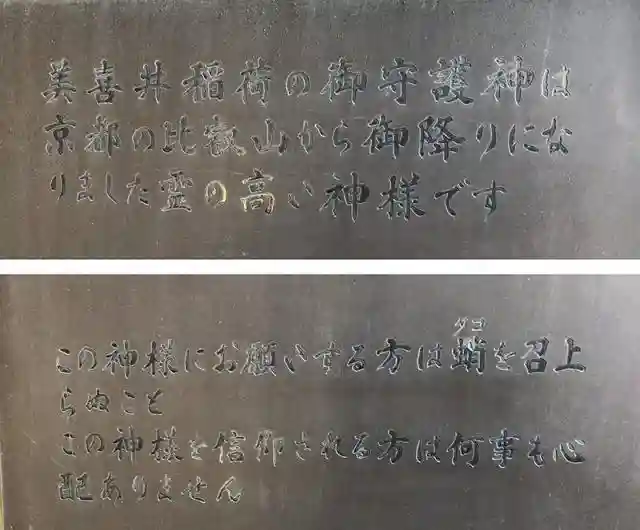 美喜井稲荷の御守護神は
京都の比叡山から御降りにな
りました霊の高い神様です
タコ
この神様にお願いする方は蛸を召上
らぬこと
この神様を信仰される方は何事も心
配ありません